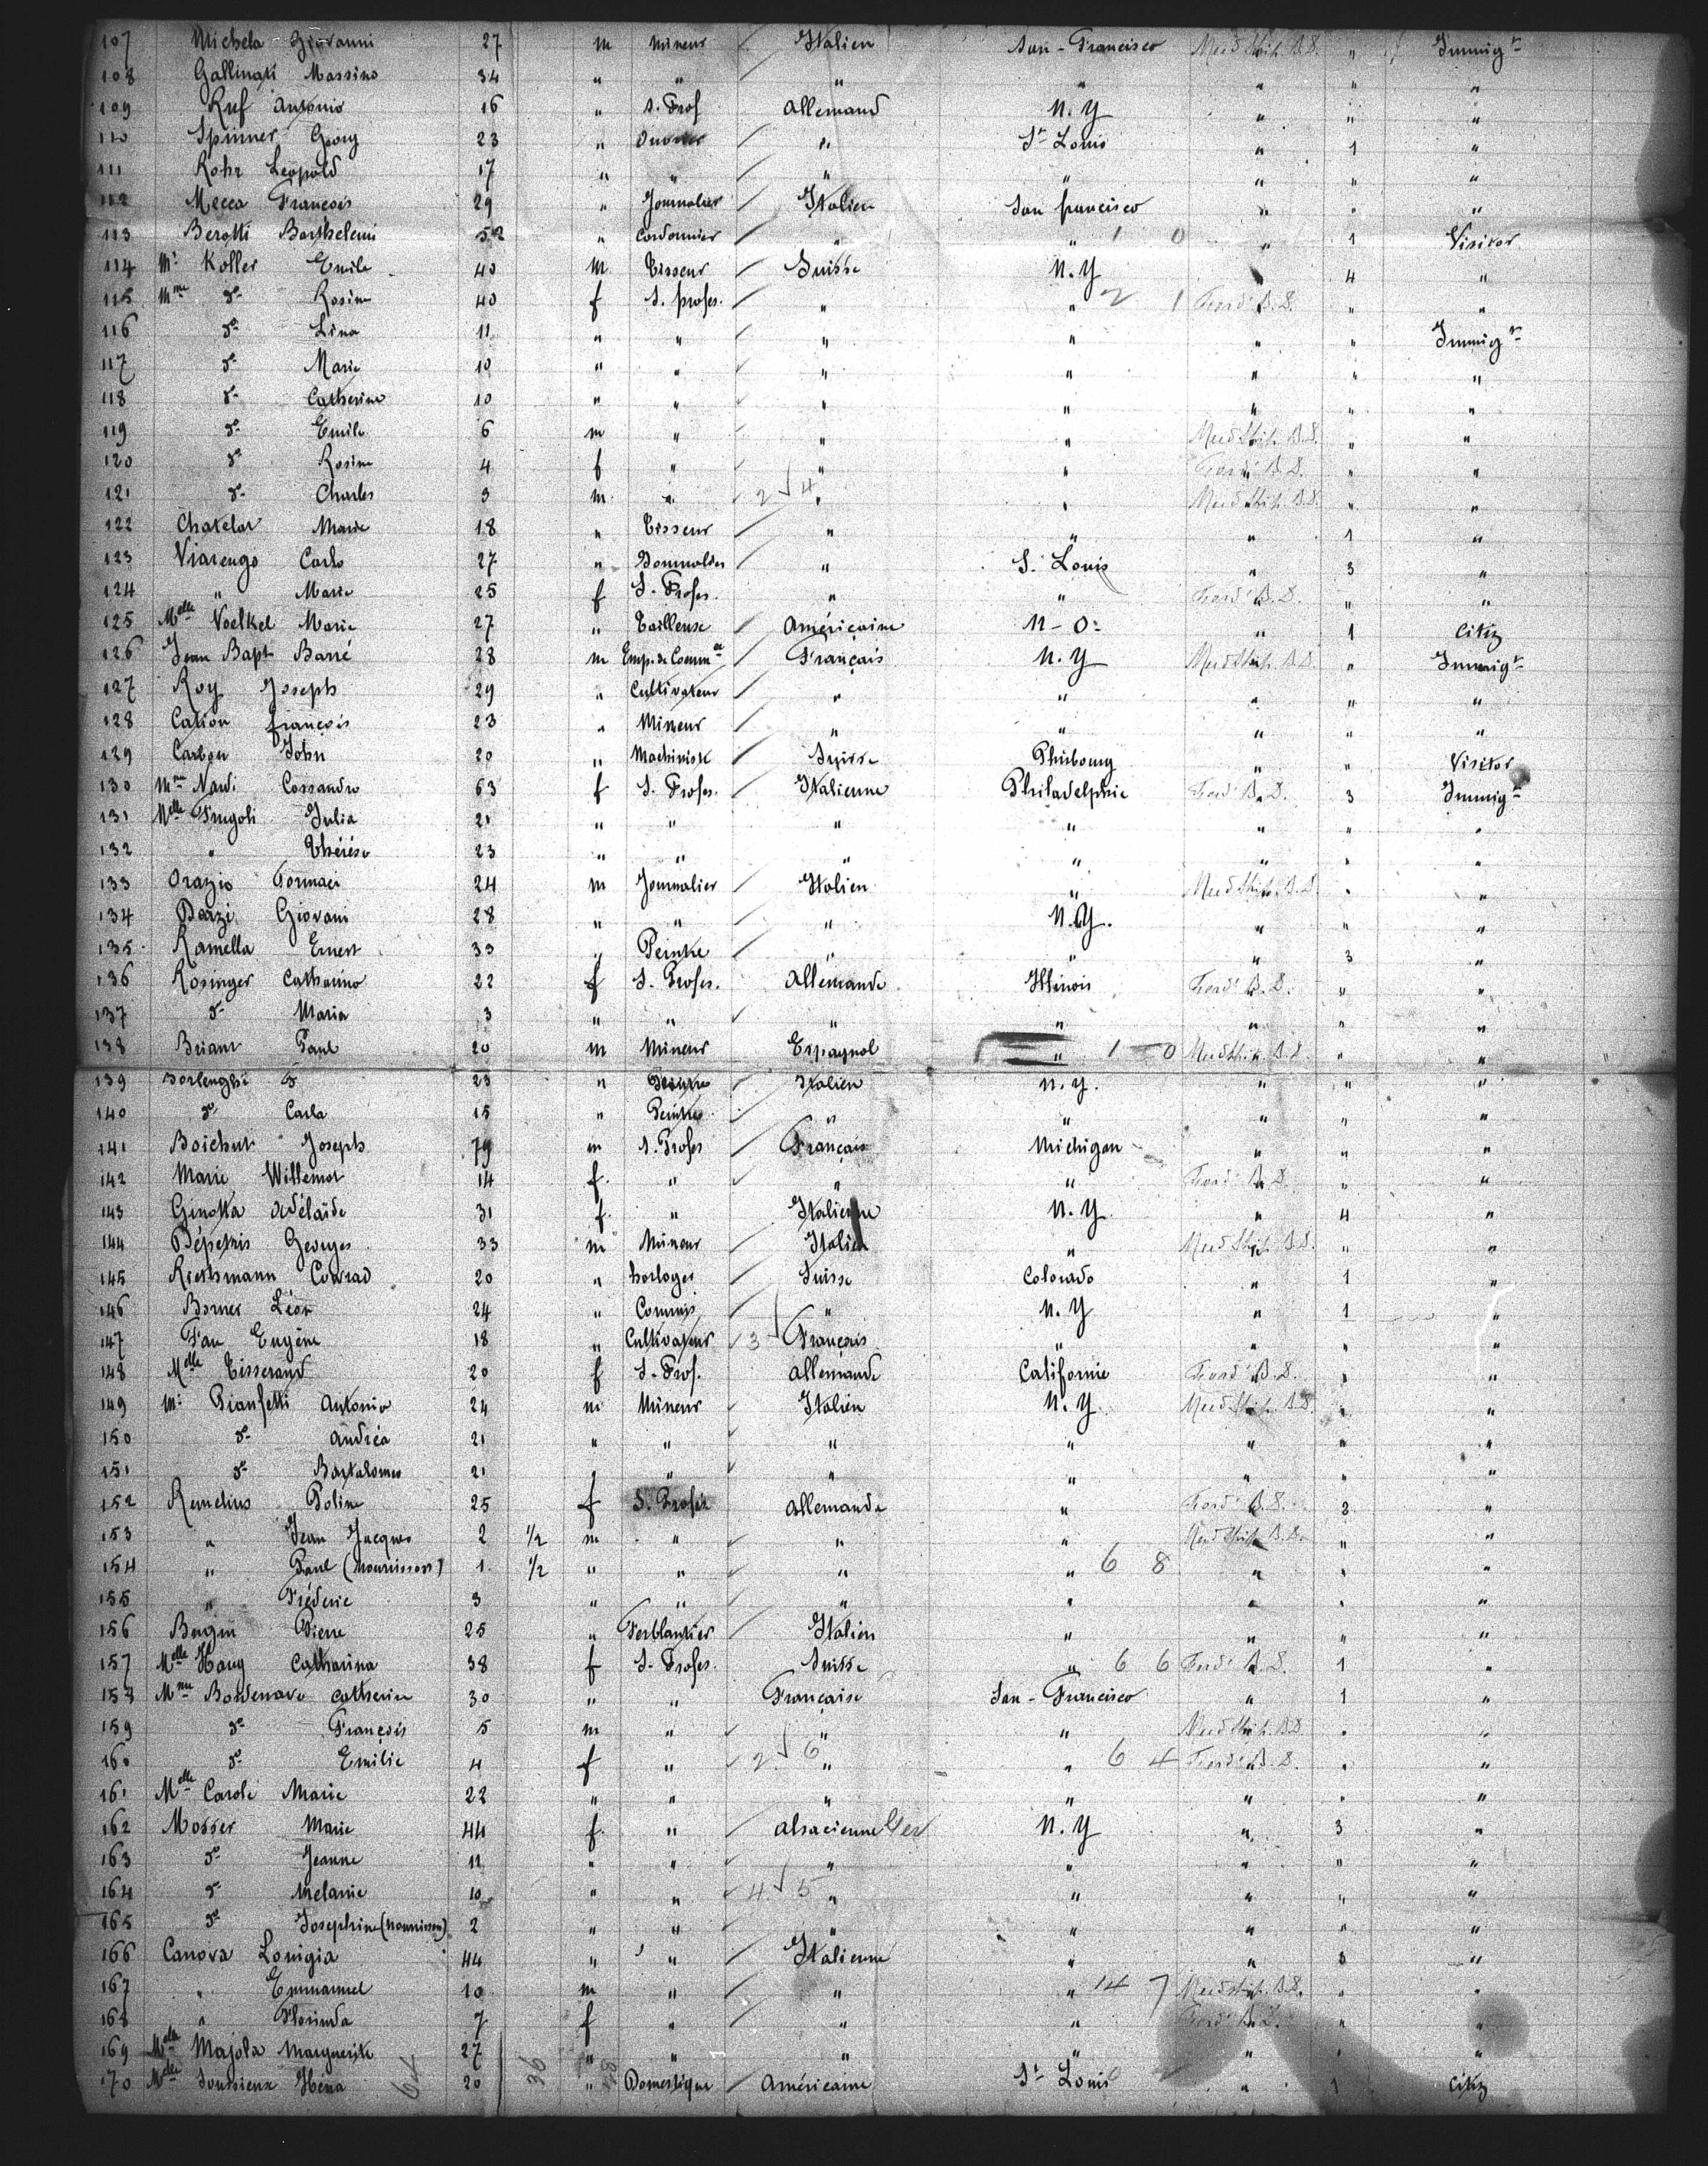 107 Michela Giovanni 27 m Mineur Italien San-Francisco Mid Ship. B.D. " Immigt
108 Gallinati Massino 34 " " " " " " "
109 Ruf Antonio 16 " S. Prof Allemand N.Y " " "
110 Spinner Georg 23 " Ouvrier " St Louis " 1 "
111 Rohr Leopold 17 " " " " " " "
112 Mecca François 29 " Journalier Italien San francisco " " "
113 Berotti Barthelemi 52 " Cordonnier " " 1 0 " 1 Visitor
114 Mr Koller Emile 40 m Tisseur Suisse N.Y " 4 "
115 Mme do Rosine 40 f S. profes. " " 2 1 Ford B.D. " "
116 do Lina 11 " " " " " " Immigt
117 do Marie 10 " " " " " " "
118 do Catherine 10 " " " " " " "
119 do Emile 6 m " " " Mid Ship. B.D. " "
120 do Rosine 4 f " " " Ford B.D. " "
121 do Charles 3 m " 2 4 " " Mid Ship. B.D. " "
122 Chatelar Marie 18 " Tisseur " " " 1 "
123 Viarengo Carlo 27 " " St. Louis " 3 "
124 " Marie 25 f S. Profes. " " Ford B.D. " "
125 Melle Voelkel Marie 27 " Tailleuse Américaine N-O: " 1 Citiz
126 Jean Bapt Barré 28 m Emp. de Comm Français N.Y Mid Ship. B.D. " Immigt
127 Roy Joseph 29 " Cultivateur " " " " "
128 Cation françois 23 " Mineur " " " " "
129 John 20 " Machiniste Suisse " " Visitor
130 Mme Nardi Cossandro 63 f S. Profes. Italienne Philadelphie Ford B.D. 3 Immigt
131 Melle Frugoli Julia 21 " " " " " " "
132 " Thérése 23 " " " " " " "
133 Orazio Tormaci 24 m Journalier Italien " Mid Ship. B.D. " "
134 Giovani 28 " " " N.Y. " " "
135 Ramella Ernest 33 " Peintre " " " 3 "
136 Rosinger Catharina 22 f S. Profes. Allemande Illinois Ford B.D. " "
137 do Maria 3 " " " " " " "
138 Briant Paul 20 m Mineur Espagnol " 1 0 Mid Ship. B.D. " "
139 Borlenghi 23 " Peintre Italien N.Y. " " "
140 do Carla 15 " Peintre " " " " "
141 Boichut Joseph 79 m S. Profes Français Michigan " " "
142 Marie Willemot 14 f. " " " Ford B.D. " "
143 Ginotta Adélaïde 31 f. " Italienne N.Y " 4 "
144 Georges 33 m Mineur Italien " Mid Ship. B.D. " "
145 Riethmann Conrad 20 " horloger Suisse Colorado " 1 "
146 Borner Léon 24 " Commis " N.Y " 1 "
147 Fau Eugène 18 " Cultivateur 3 Français " " " "
148 Melle Tisserand 20 f S. Prof. Allemande Californie Ford B.D. " "
149 Mr Pianfetti Antonio 24 m Mineur Italien N.Y Mid Ship. B.D. " "
150 do Andréa 21 " " " " " " "
151 do Bartolomeo 21 " " " " " " "
152 Remelius Poline 25 f S. Profes Allemande " Ford B.D. 3 "
153 " Jean Jacques 2 1/2 m " " " Mid Ship B.D. " "
154 " Paul (nourrisson) 1 1/2 " " " " 6 8 " " "
155 " Fréderic 3 " " " " " " "
156 Pierre 25 " Ferblantier Italien " " " "
157 Melle Haug Catharina 38 f S. Profes. Suisse " 6 6 Ford B.D. 1 "
158 Mme Bordenave Catherine 30 " " Française San-Francisco " 1 "
159 do François 5 m " " " Mid Ship. B.D. " "
160 do Emilie 4 f " 2 6 " " 6 4 Ford B.D. " "
161 Melle Caroli Marie 22 " " " " " " "
162 Mosser Marie 44 f. " Alsacienne Ger N.Y " 3 "
163 do Jeanne 11 " " " " " " "
164 do Mélanie 10 " " 4 5 " " " " "
165 do Josephine (nourrisson) 2 " " " " " " "
166 Canova Louigia 44 " " Italienne " " 3 "
167 " Emmanuel 10 m " " " 14 7 Mid Ship. B.D. " "
168 " Florinda 7 f " " " Ford B.D. " "
169 Melle Majola Marguerite 27 " " " " " " "
170 Melle Héna 64 20 36 " 28 Domestique Américaine St Louis " 1 Citiz